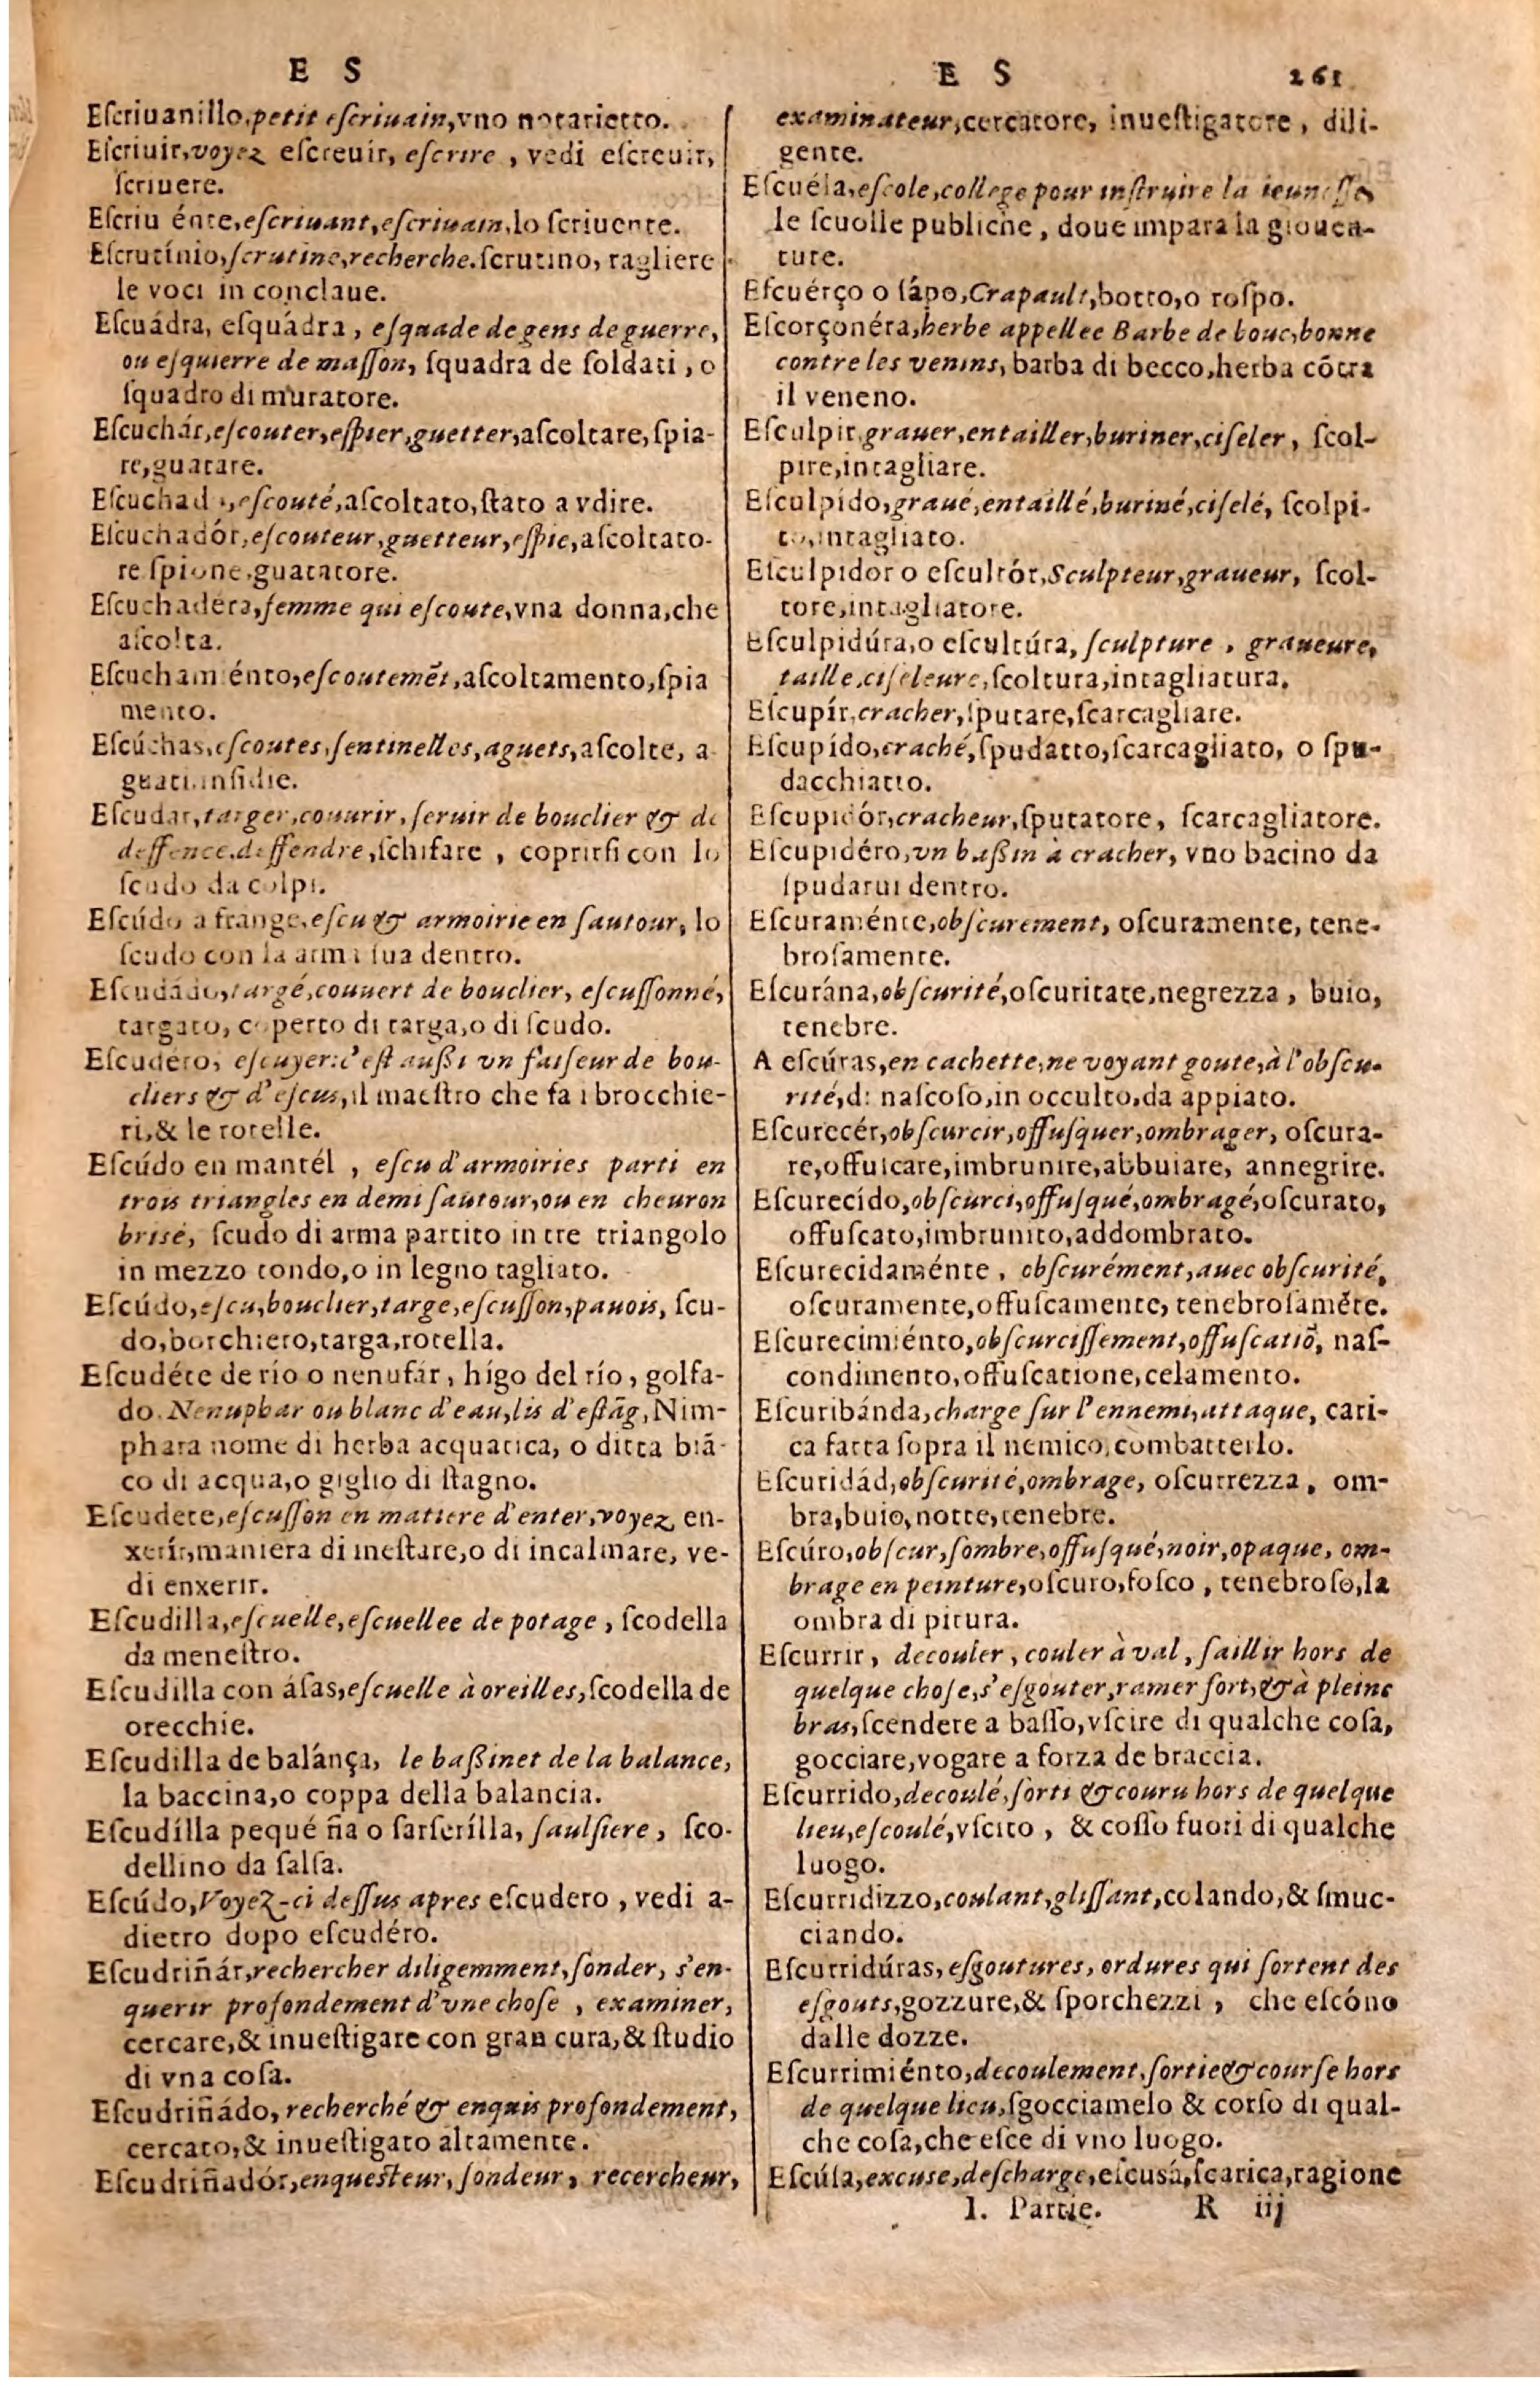 E S
Eſcriuanillo, petit eſcriuain, vno notarietto.
Eſcriuir, voyez eſcreuir, eſcrire , vedi eſcreuir,
ſcriuere.
Eſcriu énte, eſcriuant, eſcriuain, lo ſcriuente.
Eſcrutínio, ſcrutine, recherche. ſcrutino, ragliere
le voci in conclaue.
Eſcuádra, eſquádra , eſquade de gens de guerre,
ou eſquierre de maſſon, ſquadra de ſoldati , o
ſquadro di muratore.
Eſcuchár, eſcouter, eſpier, guetter, aſcoltare, ſpia-
re, guatare.
Eſcuchad eſcouté, aſcoltato, ſtato a vdire.
Eſcuchadór, eſcouteur, guetteur, eſpie, aſcoltato-
re ſpione, guatatore.
Eſcuchadera, femme qui eſcoute, vna donna, che
aſcolta.
Eſcucham énto, eſcoutemẽt, aſcoltamento, ſpia
mento.
Eſcúchas, eſcoutes, ſentinelles, aguets, aſcolte, a
guati, inſidie.
Eſcudar, targer, couurir, ſeruir de bouclier & de
deffence, deffendre, ſchifare , coprirſi con lo
ſcudo da colpi.
Eſcúdo a frange, eſcu & armoirie en ſautour, lo
ſcudo con la arma ſua dentro.
Eſcudádo, targé, couuert de bouclier, eſcuſſonné,
targato, coperto di targa, o di ſcudo.
Eſcudero, eſcuyer: c'eſt außi vn faiſeur de bou-
cliers & d'eſcus, il maeſtro che fa i brocchie-
ri, & le rotelle.
Eſcúdo en mantél , eſcu d'armoiries parti en
trois triangles en demi ſautour, ou en cheuron
brisé, ſcudo di arma partito in tre triangolo
in mezzo tondo, o in legno tagliato.
Eſcúdo, eſcu, bouclier, targe, eſcuſſon, pauois, ſcu-
do, borchiero, targa, rotella.
Eſcudéte de río o nenufár , hígo del río , golfa-
do. Nenuphar ou blanc d'eau, lis d'eſtãg, Nim-
phara nome di herba acquatica, o ditta biã-
co di acqua, o giglio di ſtagno.
Eſcudete, eſcuſſon en matiere d'enter, voyez en-
xerír, maniera di ineſtare, o di incalmare, ve-
di enxerir.
Eſcudilla, eſcuelle, eſcuellee de potage , ſcodella
da meneſtro.
Eſcudilla con áſas, eſcuelle à oreilles, ſcodella de
orecchie.
Eſcudilla de balánça, le baßinet de la balance,
la baccina, o coppa della balancia.
Eſcudílla pequé ña o ſarſerílla, ſaulſiere , ſco-
dellino da ſalſa.
Eſcúdo, Voyez-ci deſſus apres eſcudero , vedi a-
dietro dopo eſcudéro.
Eſcudriñár, rechercher diligemment, ſonder, s'en-
querir profondement d'vne choſe , examiner,
cercare, & inueſtigare con gran cura, & ſtudio
di vna coſa.
Eſcudriñádo, recherché & enquis profondement,
cercato, & inueſtigato altamente.
Eſcudriñadór, enqueſteur, ſondeur, recercheur,
E S 261
examinateur, cercatore, inueſtigatore , dili-
gente.
Eſcuéla, eſcole, college pour inſtruire la ieuneſſe,
le ſcuolle publiche , doue impara la giouen-
ture.
Eſcuérço o ſápo, Crapault, botto, o roſpo.
Eſcorçonéra, herbe appellee Barbe de bouc, bonne
contre les venins, barba di becco, herba cõtra
il veneno.
Eſculpir, grauer, entailler, buriner, ciſeler , ſcol-
pire, intagliare.
Eſculpído, graué, entaillé, buriné, ciſelé, ſcolpi-
to, intagliato.
Eſculpidor o eſcultór, Sculpteur, graueur, ſcol-
tore, intagliatore.
Eſculpidúra, o eſcultúra, ſculpture , graueure,
taille, ciſeleure, ſcoltura, intagliatura.
Eſcupír, cracher, ſputare, ſcarcagliare.
Eſcupído, craché, ſpudatto, ſcarcagliato, o ſpu-
dacchiatto.
Eſcupidór, cracheur, ſputatore, ſcarcagliatore.
Eſcupidéro, vn baßin à cracher, vno bacino da
ſpudarui dentro.
Eſcuraménte, obſcurement, oſcuramente, tene-
broſamente.
Eſcurána, obſcurité, oſcuritate, negrezza , buio,
tenebre.
A eſcúras, en cachette, ne voyant goute, à l'obſcu-
rité, di naſcoſo, in occulto, da appiato.
Eſcurecér, obſcurcir, offuſquer, ombrager, oſcura-
re, offuſcare, imbrunire, abbuiare, annegrire.
Eſcurecído, obſcurci, offuſqué, ombragé, oſcurato,
offuſcato, imbrunito, addombrato.
Eſcurecidaménte , obſcurément, auec obſcurité,
oſcuramente, offuſcamente, tenebroſamẽte.
Eſcurecimiénto, obſcurciſſement, offuſcatiõ, naſ-
condimento, offuſcatione, celamento.
Eſcuribánda, charge ſur l'ennemi, attaque, cari-
ca fatta ſopra il nemico, combatterlo.
Eſcuridád, obſcurité, ombrage, oſcurrezza , om-
bra, buio, notte, tenebre.
Eſcúro, obſcur, ſombre, offuſqué, noir, opaque, om-
brage en peinture, oſcuro, foſco , tenebroſo, la
ombra di pitura.
Eſcurrir , decouler , couler à val , ſaillir hors de
quelque choſe, s'eſgouter, ramer fort, & à pleins
bras, ſcendere a baſſo, vſcire di qualche coſa,
gocciare, vogare a forza de braccia.
Eſcurrido, decoulé, ſorti & couru hors de quelque
lieu, eſcoulé, vſcito , & coſſo fuori di qualche
luogo.
Eſcurridizzo, coulant, gliſſant, colando, & ſmuc-
ciando.
Eſcurridúras, eſgoutures, ordures qui ſortent des
eſgouts, gozzure, & ſporchezzi , che eſcóno
dalle dozze.
Eſcurrimiénto, decoulement, ſortie & courſe hors
de quelque lieu, ſgocciamelo & corſo di qual-
che coſa, che eſce di vno luogo.
Eſcúſa, excuse, deſcharge, eſcusá, ſcarica, ragione
I. Partie. R iij